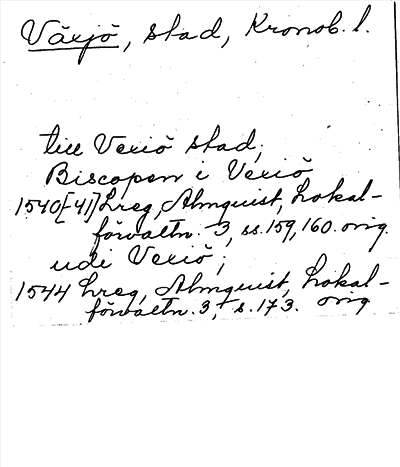 Växjö, stad, Kronob. l.
till Vexiö stad;
Biscopen i Vexiö
1540[-41] Lreg, Almquist, Lokal-
förvaltn. 3, ss. 159, 160. orig.
udi Vexiö;
1544 Lreg, Almquist, Lokal-
förvaltn. 3, s. 173. orig